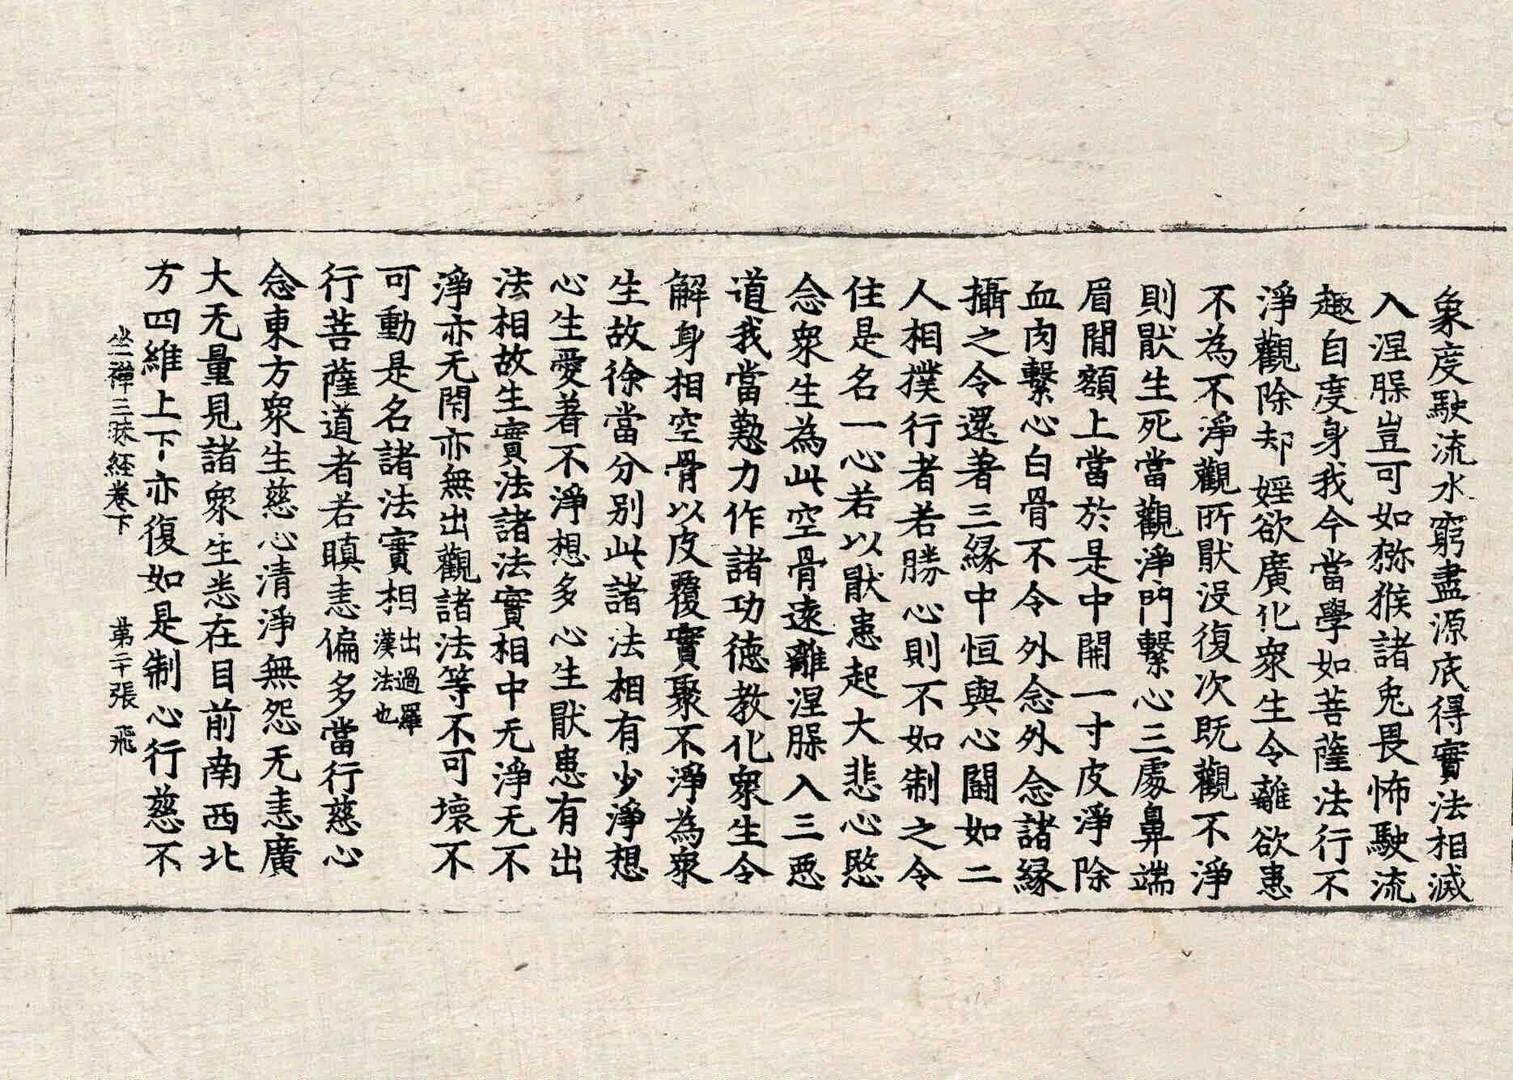 象度駛流水窮盡源底得實法相滅
入涅槃豈可如獼猴諸兎畏怖駛流
趣自度身我今當學如菩薩法行不
淨觀除却婬欲廣化衆生令離欲患
不為不淨觀所猒沒復次既觀不淨
則猒生死當觀淨門繫心三處鼻端
眉閒額上當於是中開一寸皮淨除
血肉繫心白骨不令外念外念諸縁
攝之令還著三縁中恒與心鬪如二
人相撲行者若勝心則不如制之令
住是名一心若以猒患起大悲心愍
念衆生為此空骨遠離涅槃入三惡
道我當懃力作諸功德教化衆生令
解身相空骨以皮覆實聚不淨為衆
生故徐當分別此諸法相有少淨想
心生愛著不淨想多心生猒患有出
法相故生實法諸法實相中无淨无不
淨亦无閇亦無出觀諸法等不可壞不
可動是名諸法實相出過羅漢法也
行菩薩道者若瞋恚偏多當行慈心
念東方衆生慈心清淨無怨无恚廣
大无量見諸衆生悉在目前南西北
方四維上下亦復如是制心行慈不
坐禪三昧經卷下 第二十張 飛